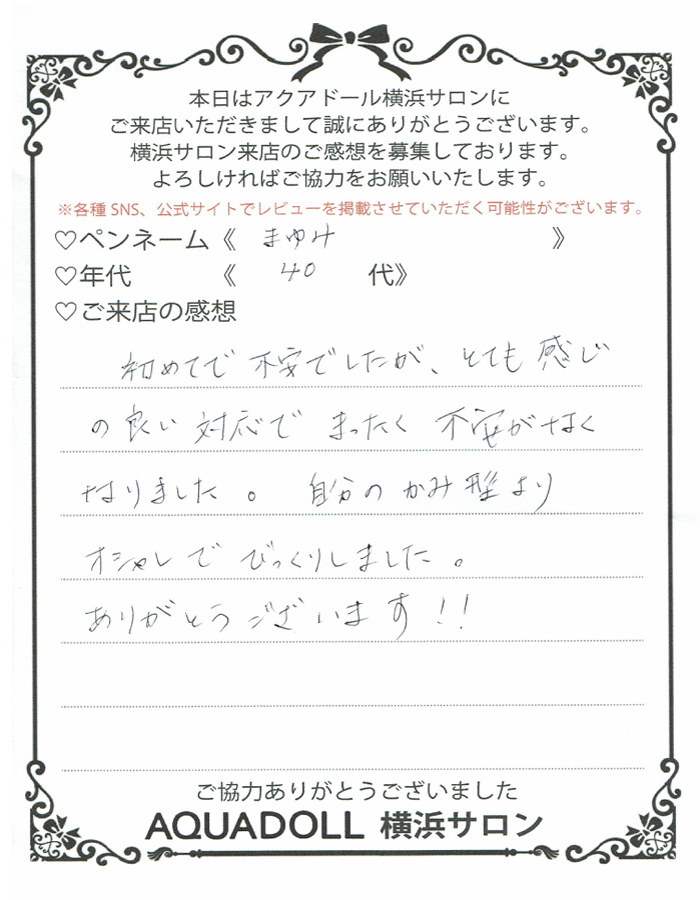 本日はアクアドール横浜サロンに
ご来店いただきまして誠にありがとうございます。
横浜サロン来店のご感想を募集しております。
よろしければご協力をお願いいたします。
※各種 SNS、公式サイトでレビューを掲載させていただく可能性がございます。
♡ペンネーム《 まゆみ 》
♡年代 《 40 代》
♡ご来店の感想
初めてで 不安でしたが、とても 感じ
の 良い 対応で まったく 不安が なく
なりました 。 自分の かみ型より
オシャレで びっくりしました 。
ありがとうございます!!
ご協力ありがとうございました
AQUADOLL 横浜サロン